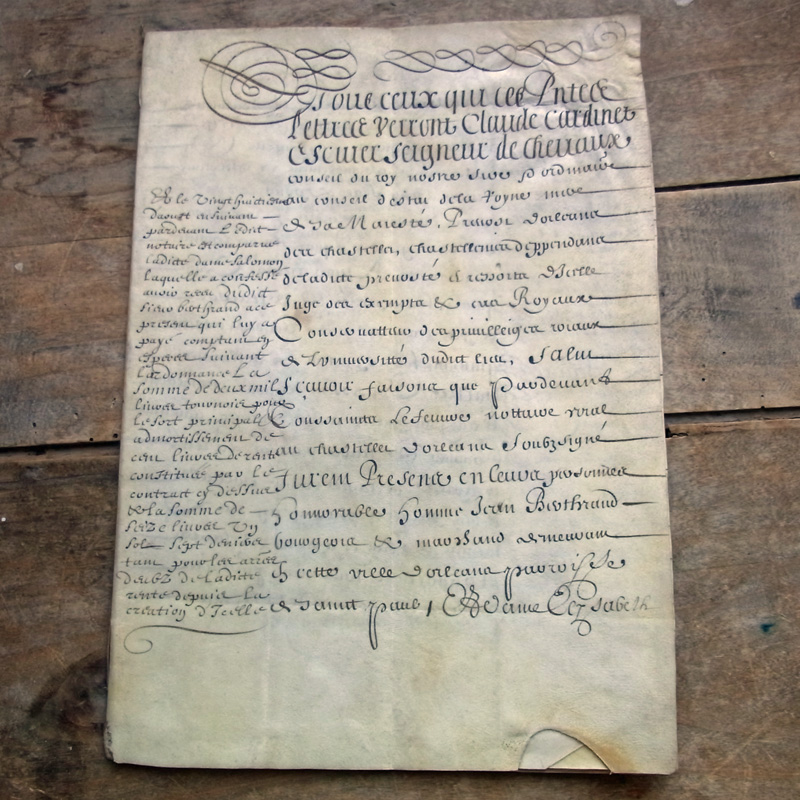 A tous ceux qui ces Pntes
lettres Verront Claude Cardinet
Escuier Seigneur de Cheuaux
conseil du roy nostre Sire Et ordinaire
au conseil destat de la Royne mere
de Sa Maiesté, Preuost dorleans
des chastellet, chastellenies deppendans
de ladicte preuosté et ressorts dIcelle
Juge des exempts & cas Royaux
Conseruatteur des priuilleiges roiaux
de Luniuersité dudict lieu, Salut
Scauoir faisons que Pardeuant
Toussaincts Lefeuure nottaire royal
au chastellet dorleans Soubzsigné
Jurent Presens en leurs personnes
honnorables homme Jean Berthrand
bourgeois & marchand demeurant
En cette ville dorleans parroisse
de Sainct paul, Et dame Elizabeth
Et le Vingt huictieme
daoust ensuiuant
pardeuant Ledict
notaire Est comparue
ladicte dame Salomon
laquelle a confessé
auoir receu dudict
sieur berthrand a ce
present qui luy a
payé comptant en
especes suiuant
lordonnance La
somme de deux mil
liures tournois pour
le sort principal &
admortissement de
cent liures de rente
constituée par le
contract cy dessus
& la somme de
seize liures Vn
sol sept deniers
tant pour les arrer
deubz de ladicte
rente depuis la
creation dIcelle